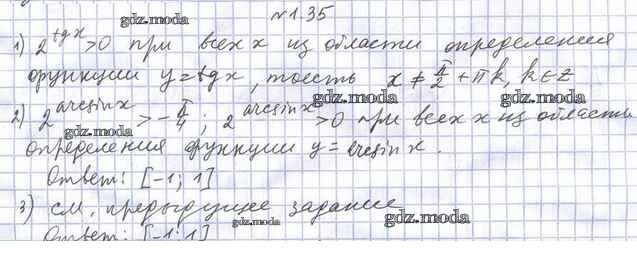 №1.35
1) 2^tgx > 0 при всех x из области определения
функции y = tgx, тоесть x ≠ π/2 + πk, k ∈ z
2) 2^arcsinx > -π/4 ; 2^arcsinx > 0 при всех x из области
определения функции y = arcsin x.
Ответ: [-1; 1]
3) см. предыдущее задание
Ответ: [-1; 1]
gdz.moda
gdz.moda
gdz.moda
gdz.moda
gdz.moda
gdz.moda
gdz.moda
gdz.moda